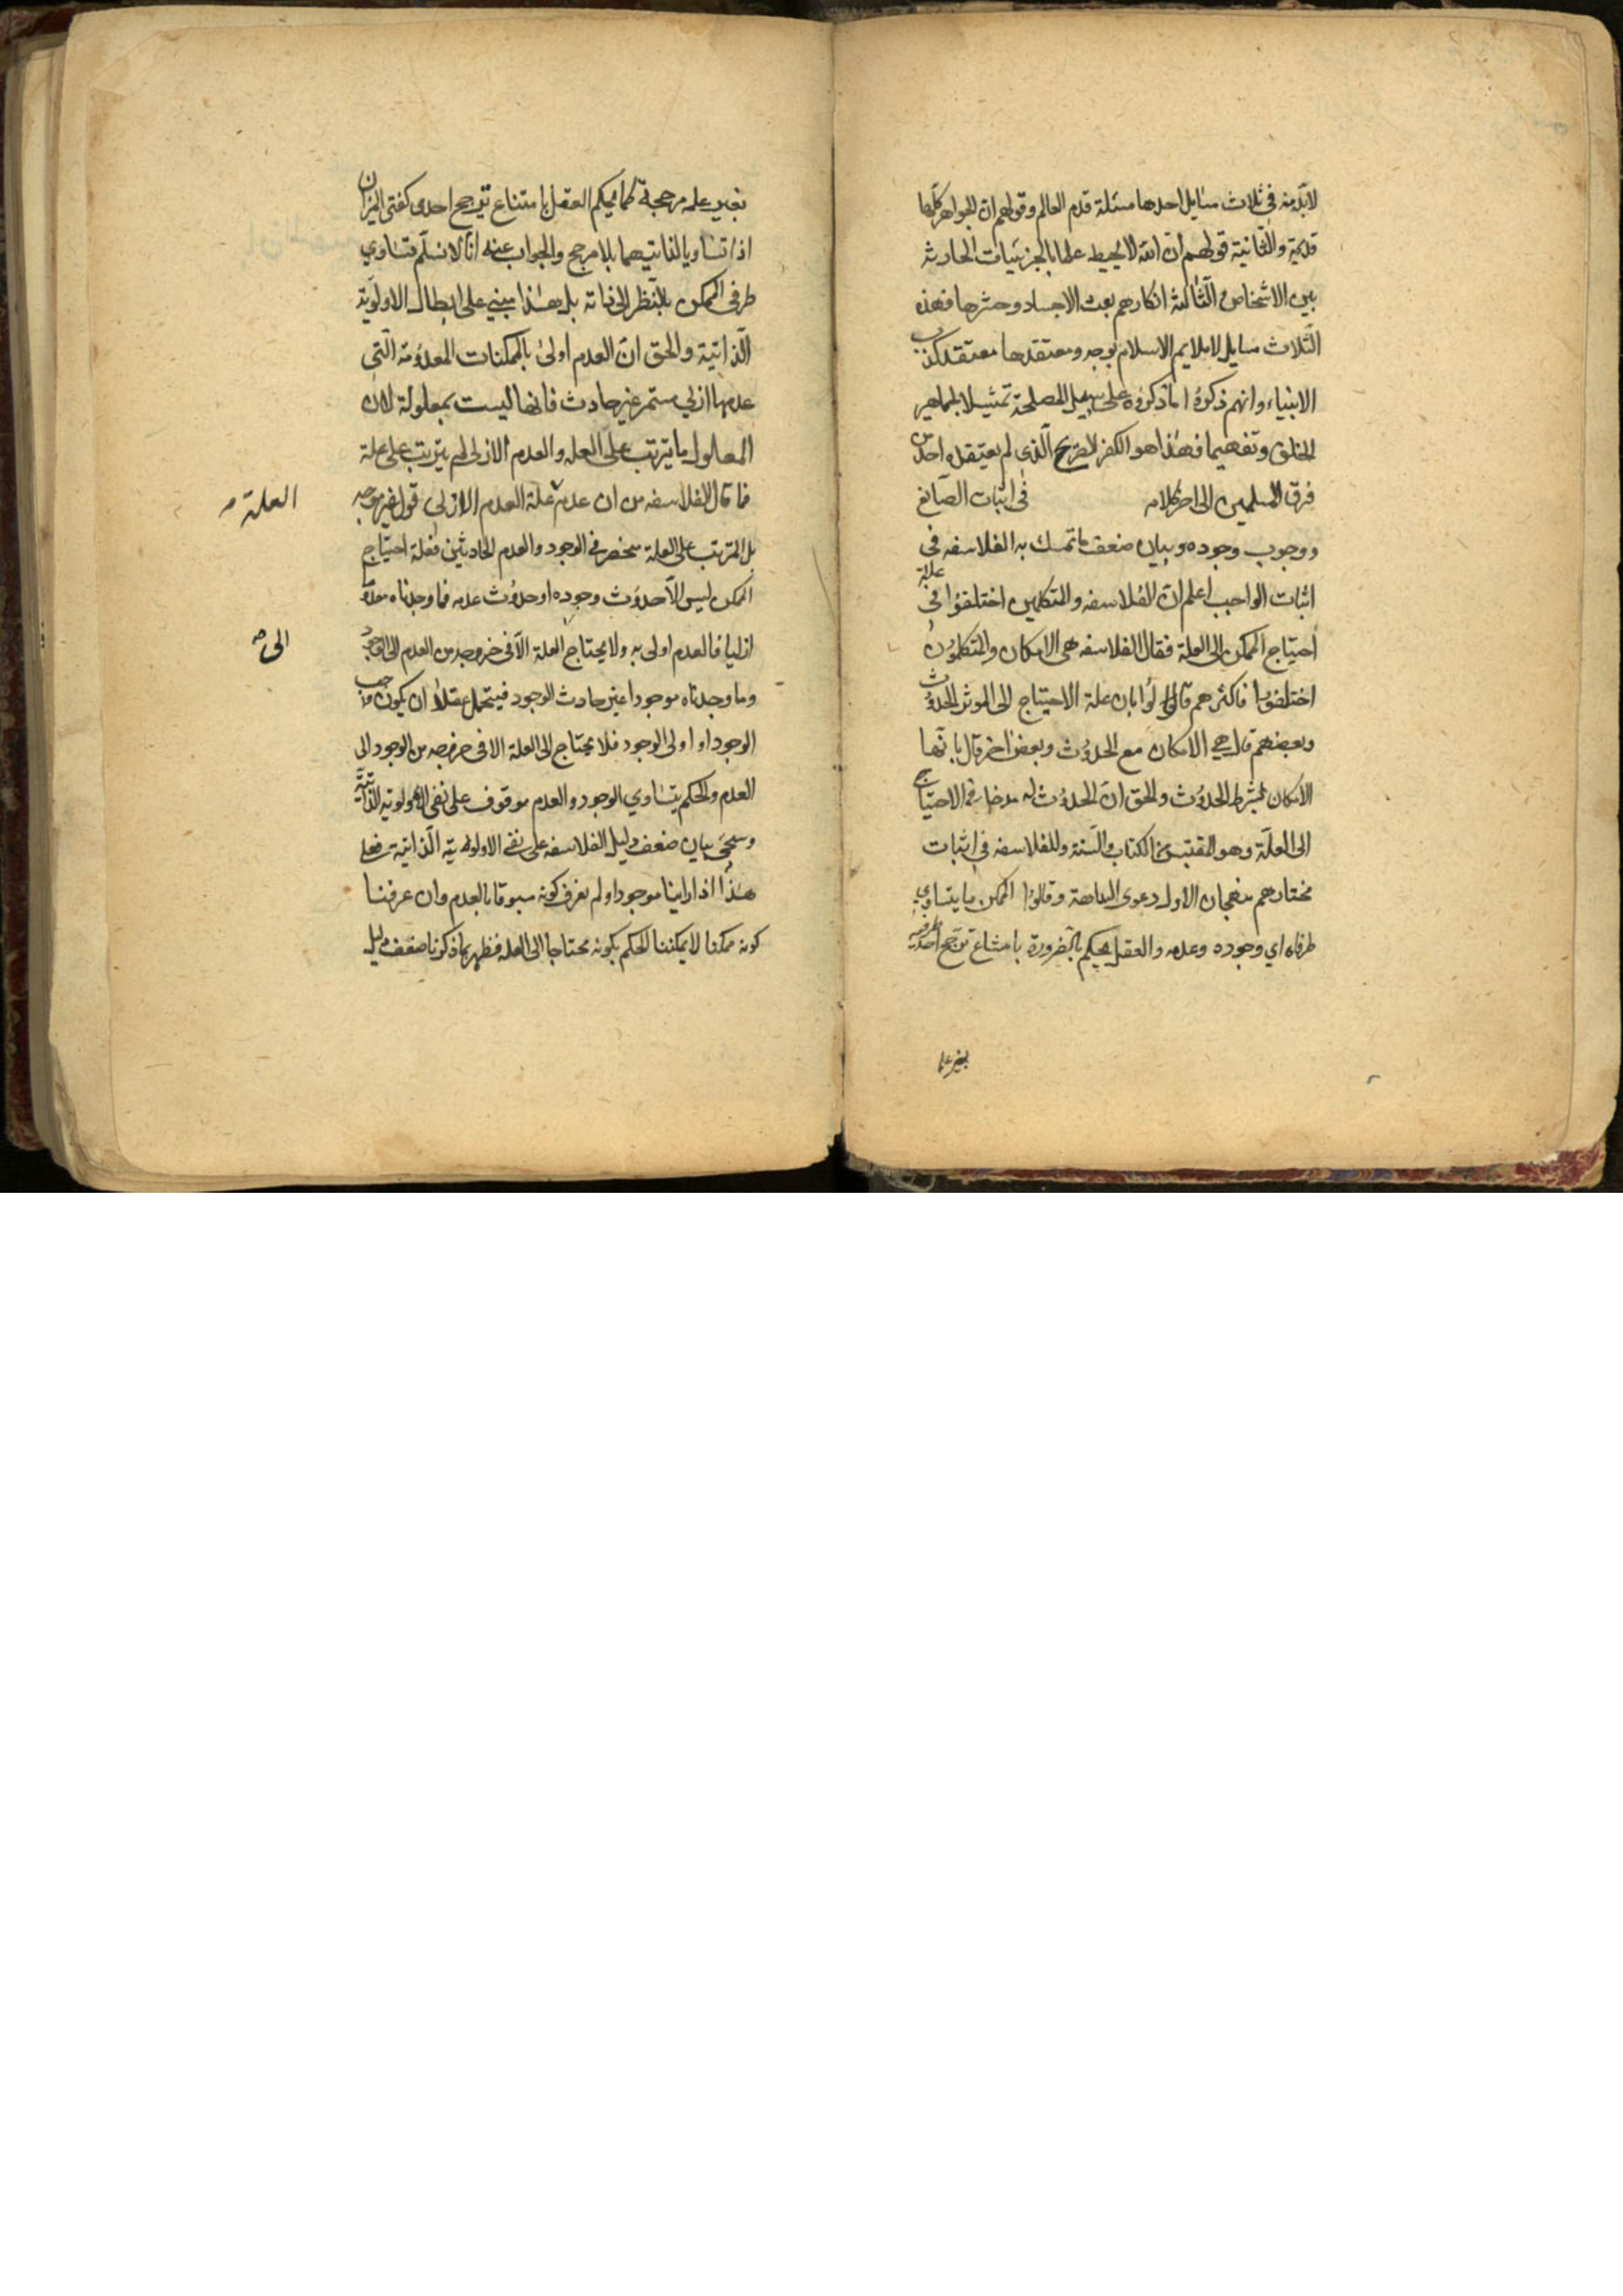 لابد منه فی ثلاث مسایل احدها مسئلة قدم العالم وقولهم ان الجواهر کلها
قدیمة والثانیة قولهم ان الله لا یحیط علما بالجزئیات الحادثة
بین الاشخاص والثالثة انکارهم بعث الاجساد وحشرها فهذه
الثلاث مسایل لا یلایم الاسلام بوجه ومعتقدها معتقد کذب
الانبیاء وانهم ذکروا ما ذکروه علی سبیل المصلحة تمثیلا لجماهیر
الخلق وتفهیما فهذا هو الکفر الصریح الذی لم یعتقده احد من
فرق المسلمین الی اخر کلامه فی اثبات الصانع
ووجوب وجوده وبیان ضعف ما تمسک به الفلاسفه فی
اثبات الواجب اعلم ان الفلاسفه والمتکلمین اختلفوا فی علة
احتیاج الممکن الی العلة فقال الفلاسفه هی الامکان والمتکلمون
اختلفوا فاکثرهم قالوا بان علة الاحتیاج الی الموثر الحدوث
وبعضهم قال هی الامکان مع الحدوث وبعض اخر قال بانها
الامکان بشرط الحدوث والحق ان الحدوث له مدخل فی الاحتیاج
الی العلة وهو المقتبس من الکتاب والسنة وللفلاسفه فی اثبات
مختارهم منهجان الاول دعوی البداهة وقالوا الممکن ما یتساوی
طرفاه ای وجوده وعدمه والعقل یحکم بالضرورة بامتناع ترجح احد طرفیه
بغیر علة
بغیر علة مرجحة کما یحکم العقل بامتناع ترجح احدی کفتی المیزان
اذا تساویا لذاتیهما بلا مرجح والجواب عنه انا لا نسلم تساوی
طرفی الممکن بالنظر الی ذاته بل هذا مبنی علی ابطال الاولویة
الذاتیة والحق ان العدم اولی بالممکنات المعدومة التی
عدمها ازلی مستمر غیر حادث فانها لیست بمعلولة لان
المعلول ما یترتب علی العله والعدم الازلی لم یترتب علی علة
فما قال الفلاسفه من ان عدم علة العدم الازلی قول غیر موجه
العلة
بل المترتب علی العلة منحصر فی الوجود والعدم الحادثین فعلة احتیاج
الممکن لیس الا حدوث وجوده او حدوث عدمه فما وجدناه معدوما
ازلیا فالعدم اولی به ولا یحتاج العلة الا فی خروجه من العدم الی الوجود
الی
وما وجدناه موجودا غیر حادث الوجود فیحتمل عقلا ان یکون واجب
الوجود او اولی الوجود فلا یحتاج الی العلة الا فی خروجه من الوجود الی
العدم والحکم بتساوی الوجود والعدم موقوف علی نفی الاولویة الذاتیة
وسیجئ بیان ضعف دلیل الفلاسفه علی نفی الاولویة الذاتیة فعلی
هذا اذا راینا موجودا ولم نعرف کونه مسبوقا بالعدم وان عرفنا
کونه ممکنا لا یمکننا الحکم بکونه محتاجا الی العله فظهر بما ذکرنا ضعف دلیل